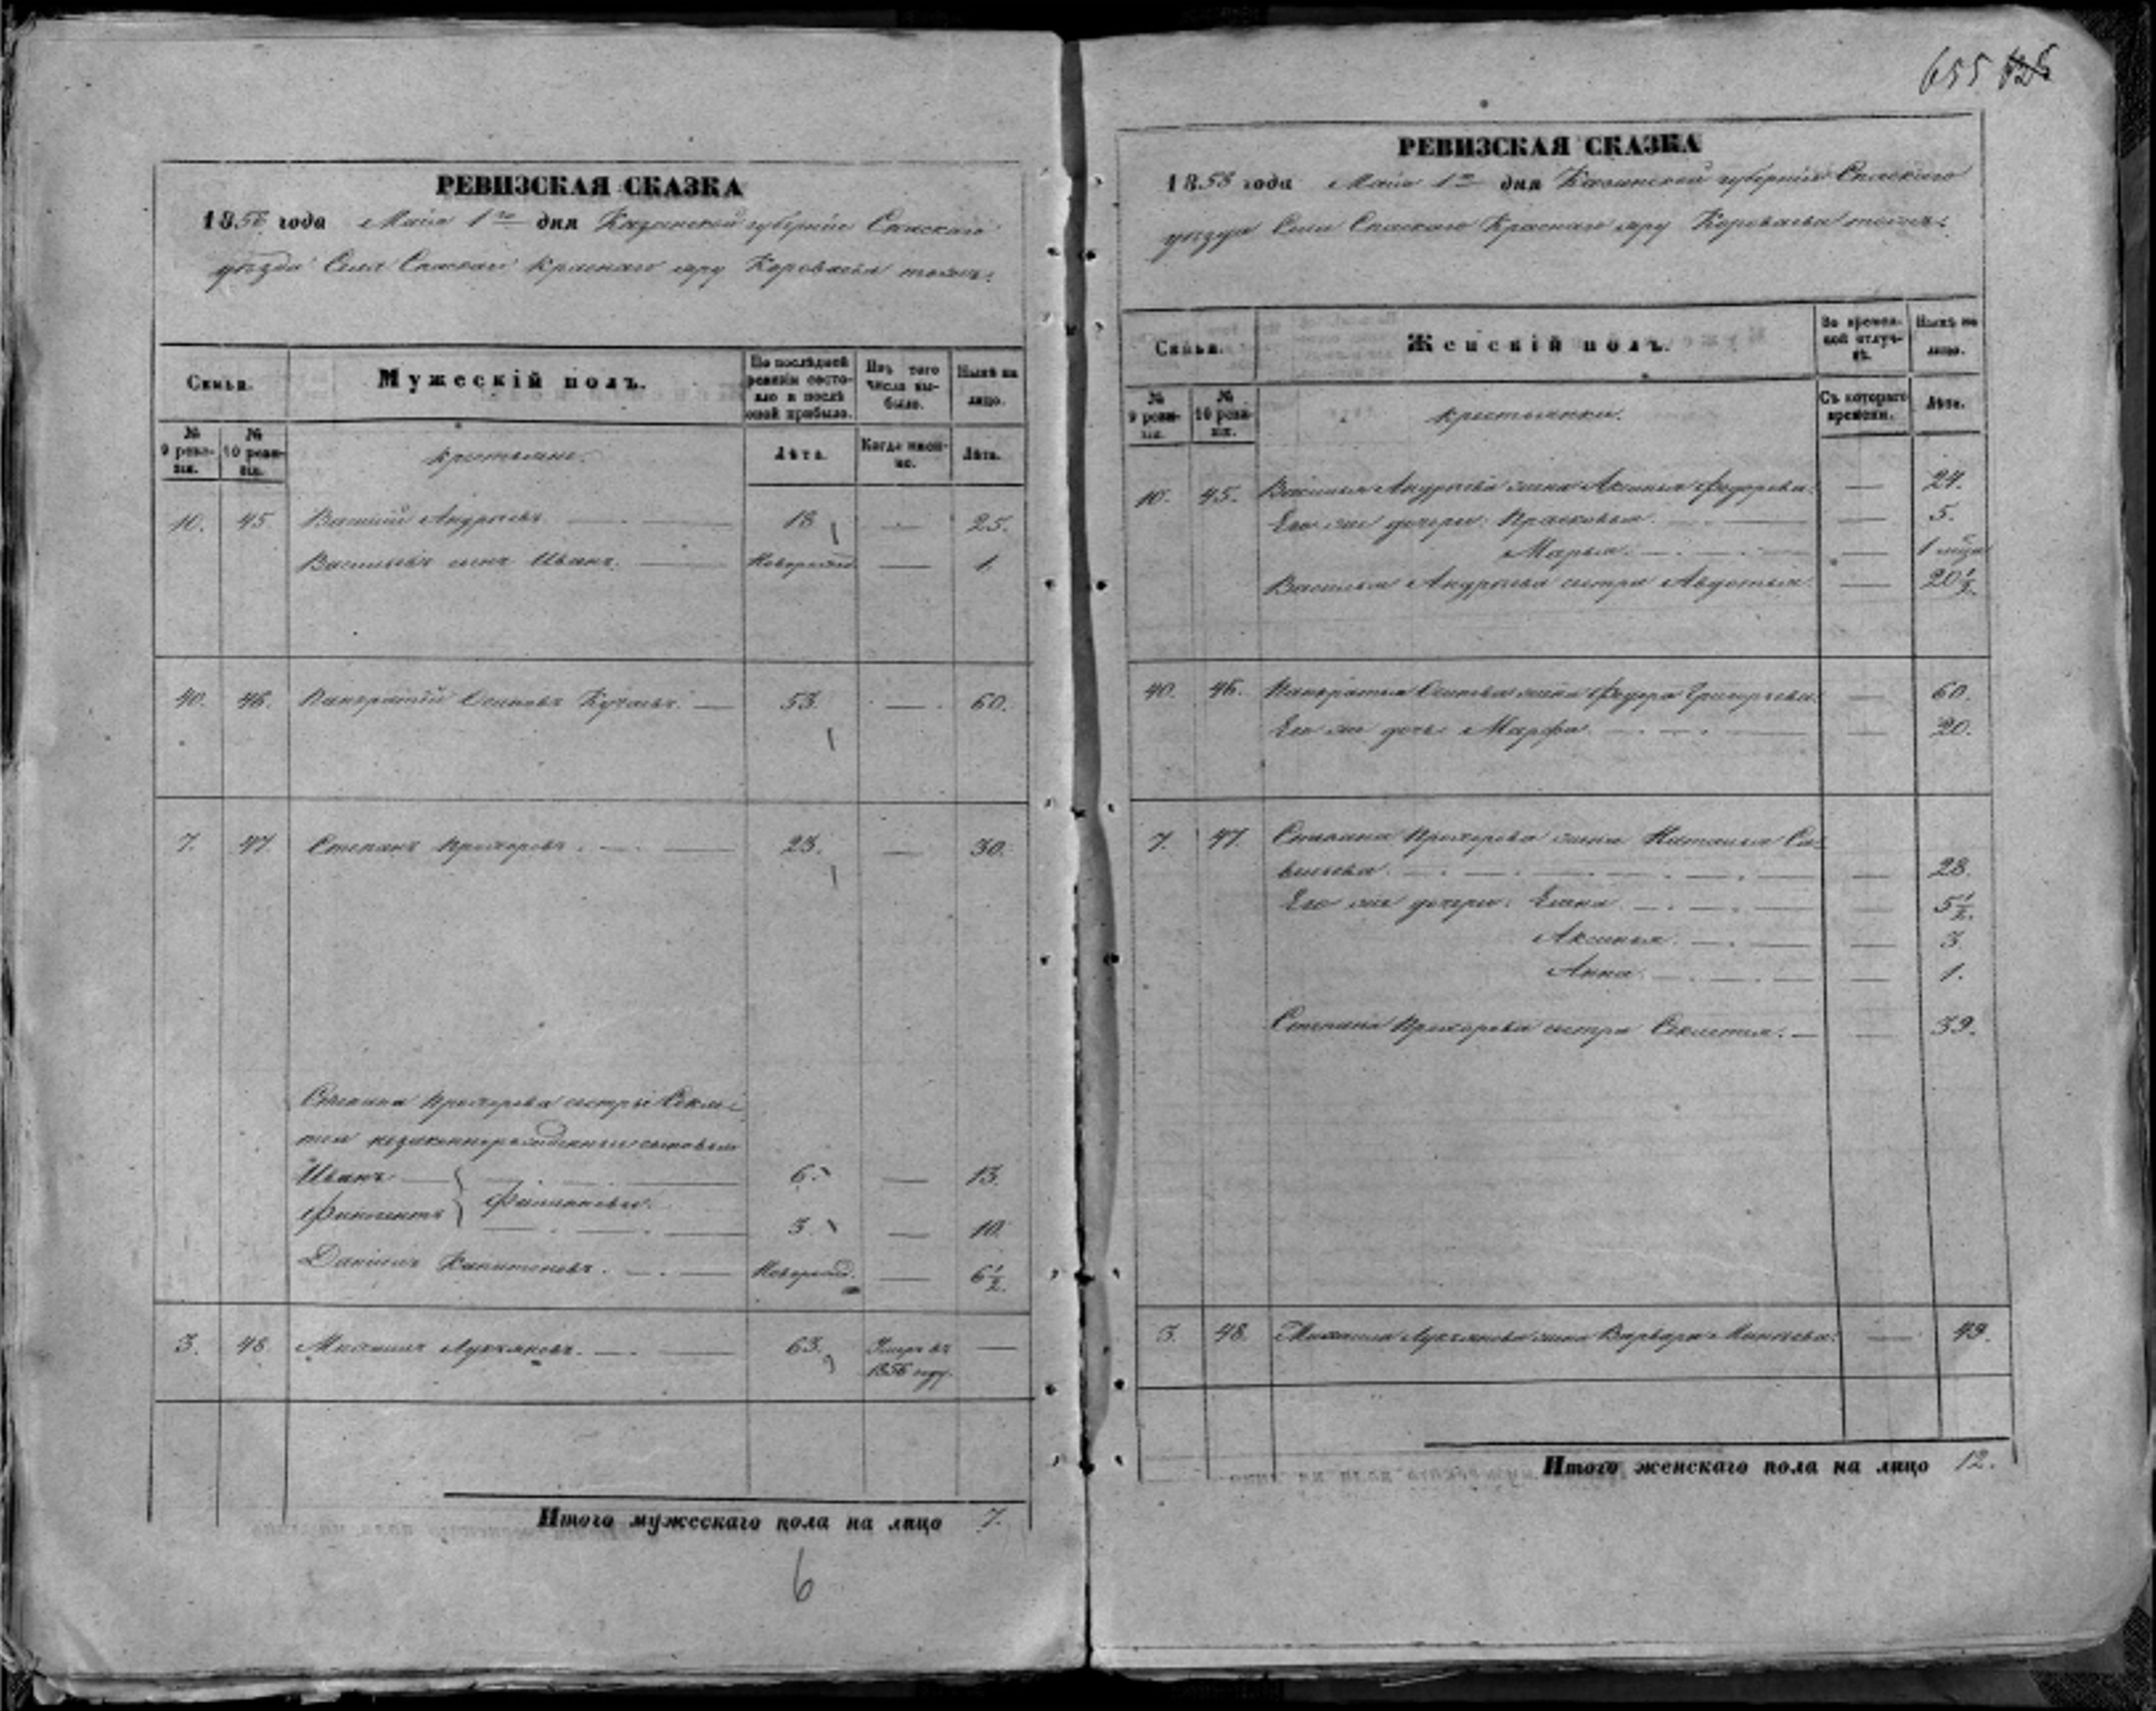 655 125
РЕВИЗСКАЯ СКАЗКА
1858 года Мая 1го дня Казанской губернiи Спаскаго
уезда Села Спаскаго Краснаго яру Короваева тожъ:
Семьи.
Мужескiй полъ.
По послѣдней ревизiи состояло и послѣ оной прибыло.
Изъ того числа выбыло.
Нынѣ на лицо.
№ 9 ревизiи.
№ 10 ревизiи.
крестьяне.
Лѣта.
Когда именно.
Лѣта.
10. 45 Василiй Андреевъ. 18 — 25.
Васильевъ сынъ Иванъ. Новорожд. — 1.
40. 46. Панкратiй Осиповъ Кучаевъ. 53. — 60.
7. 47 Степанъ Прохоровъ. 23. — 30.
Степана Прохорова сестры Секле-
теи незаконнорожденныи сыновья
Иванъ 6. — 13.
Филиповы.
3. — 10.
Данiилъ Капитоновъ. Новорожд. — 6½.
3. 48 Михаилъ Лукъяновъ. 63. Умеръ въ —
1856 году.
Итого мужескаго пола на лицо 7.
6
РЕВИЗСКАЯ СКАЗКА
1858 года Мая 1го дня Казанской губернiи Спаскаго
уезда Села Спаскаго Краснаго яру Короваева тожъ:
Семьи.
Женскiй полъ.
Во временной отлучкѣ.
Нынѣ на лицо.
№ 9 ревизiи.
№ 10 ревизiи.
крестьянки.
Съ котораго времени.
Лѣта.
10. 45. Василья Андреева жена Аксинья Федорова. — 24.
Его же дочери: Прасковья. — 5.
Марья. — 1 мѣця
Василья Андреева сестра Авдотья. — 20½.
40. 46. Панкратья Осипова жена Федора Григорьева. — 60.
Его же дочь Марфа — 20.
7. 47. Степана Прохорова жена Наталья Са-
вельева. — 28.
Его же дочери: Елена. — 5½.
Аксинья. — 3.
Анна. — 1.
Степана Прохорова сестра Секлетея. — 39.
3. 48. Михаила Лукъянова жена Варвара Минаева. — 49.
Итого женскаго пола на лицо 12.